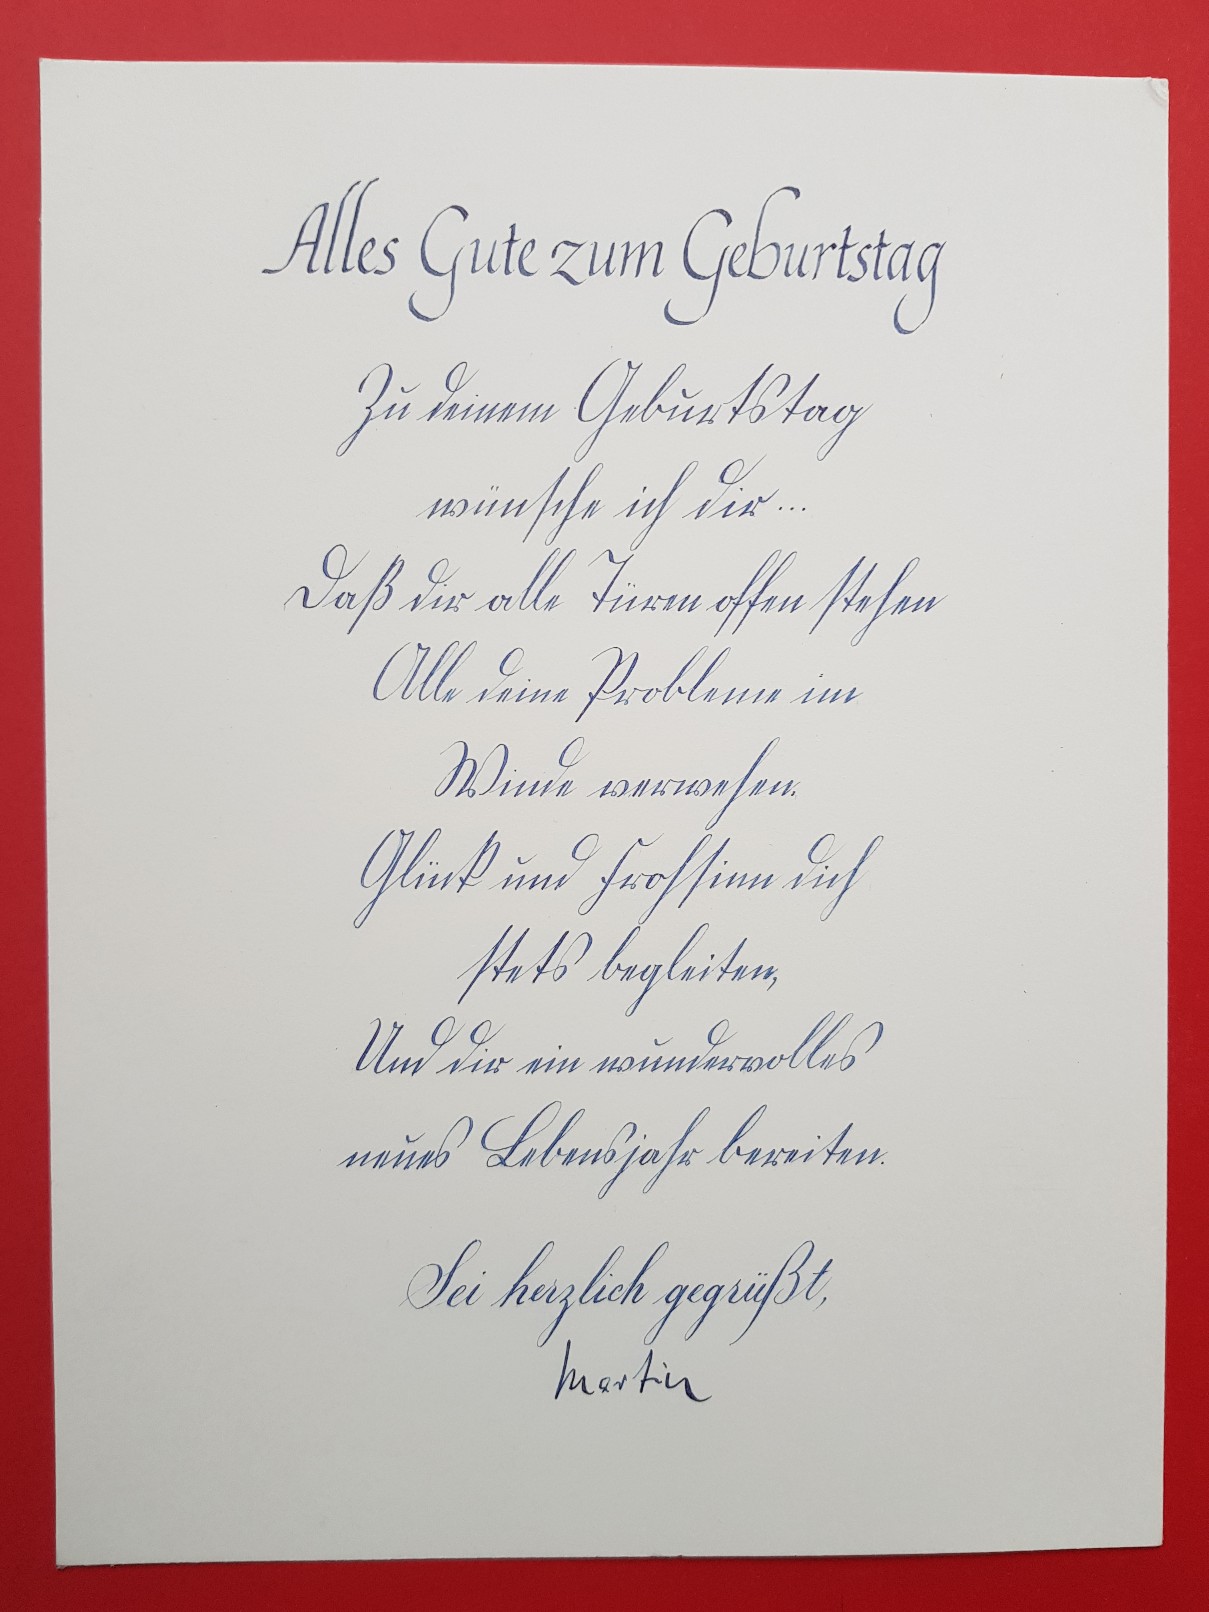 Alles Gute zum Geburtstag
Zu deinem Geburtstag
wünsche ich dir...
Daß dir alle Türen offen stehen
Alle deine Probleme im
Winde verwehen.
Glück und Frohsinn dich
stets begleiten,
Und dir ein wundervolles
neues Lebensjahr bereiten.
Sei herzlich gegrüßt,
Martin